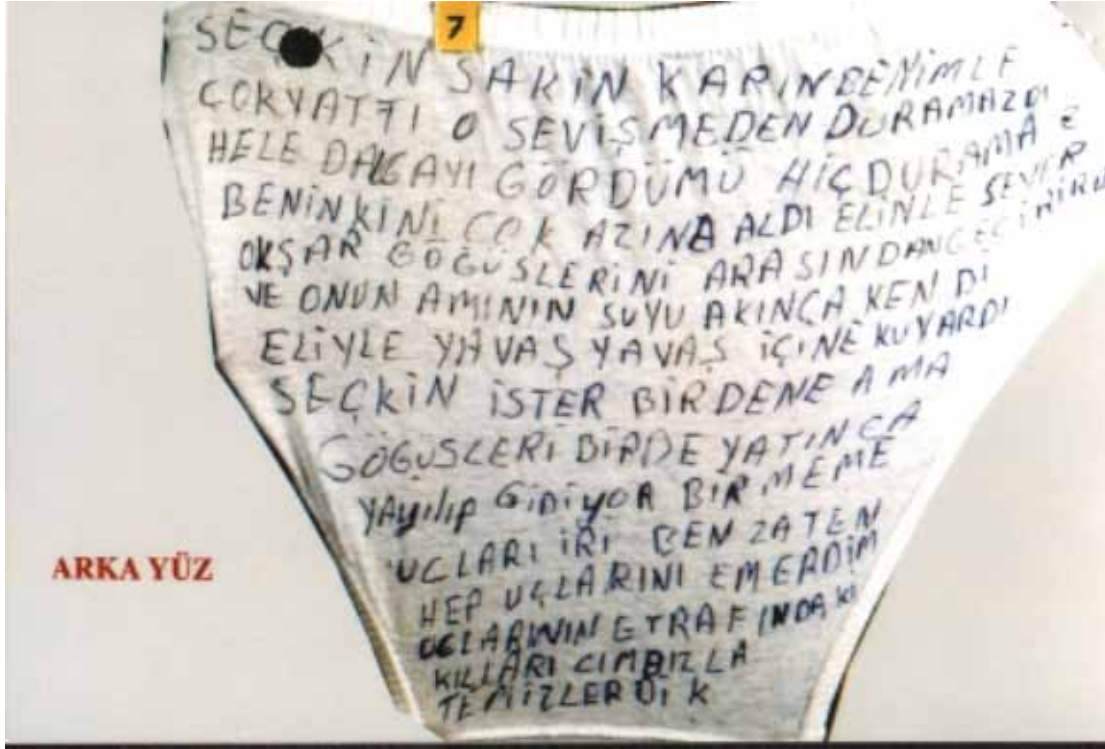 7
SEÇKİN SAKİN KARIN BENİMLE
ÇOK YATTI O SEVİŞMEDEN DURAMAZDI
HELE DALGAYI GÖRDÜMÜ HİÇ DURAMA
BENİNKİNİ ÇOK AZINA ALDI ELİNLE SEVER
OKŞAR GÖĞÜSLERİNİ ARASINDAN GEÇİRİR
VE ONUN AMININ SUYU AKINCA KENDİ
ELİYLE YAVAŞ YAVAŞ İÇİNE KUYARDI
SEÇKİN İSTER BİRDENE AMA
GÖĞÜSLERI BİRDE YATINCA
YAYILIP GİDİYOR BİR MEME
UCLARI İRİ BEN ZATEN
HEP UÇLARINI EMERDİM
UCLARININ ETRAFINDAKI
KILLARI CIMBIZLA
TEMİZLERDİK
ARKA YÜZ